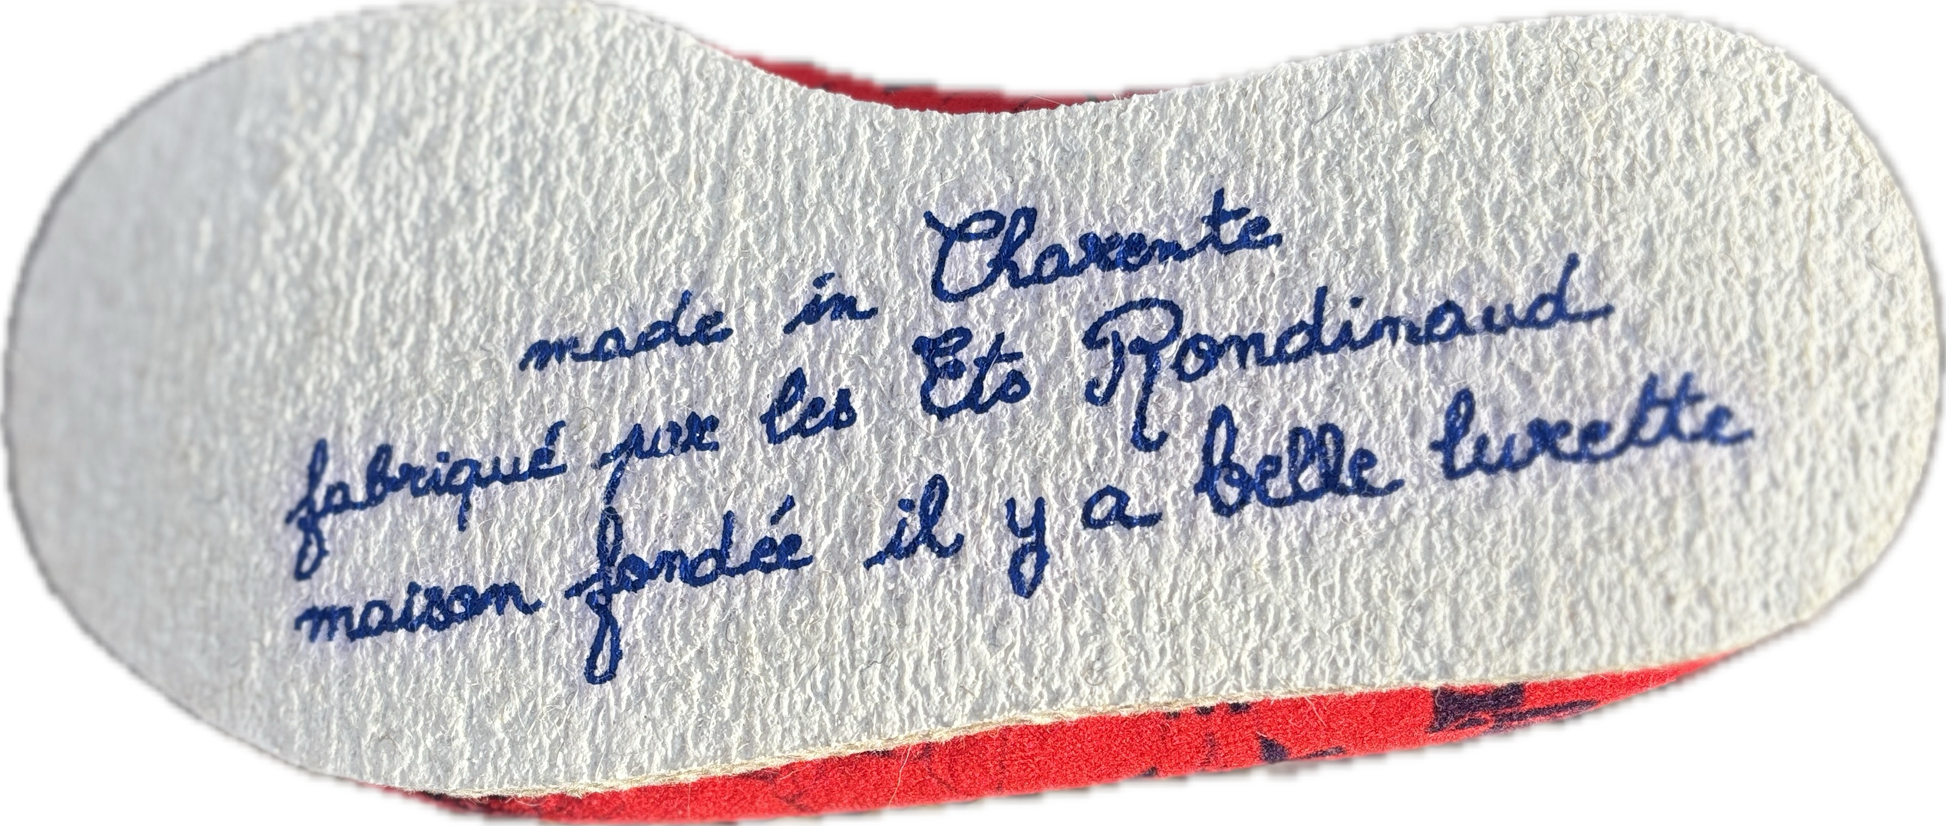 made in Charente
fabriqué par les Ets Rondinaud
maison fondée il y a belle lurette